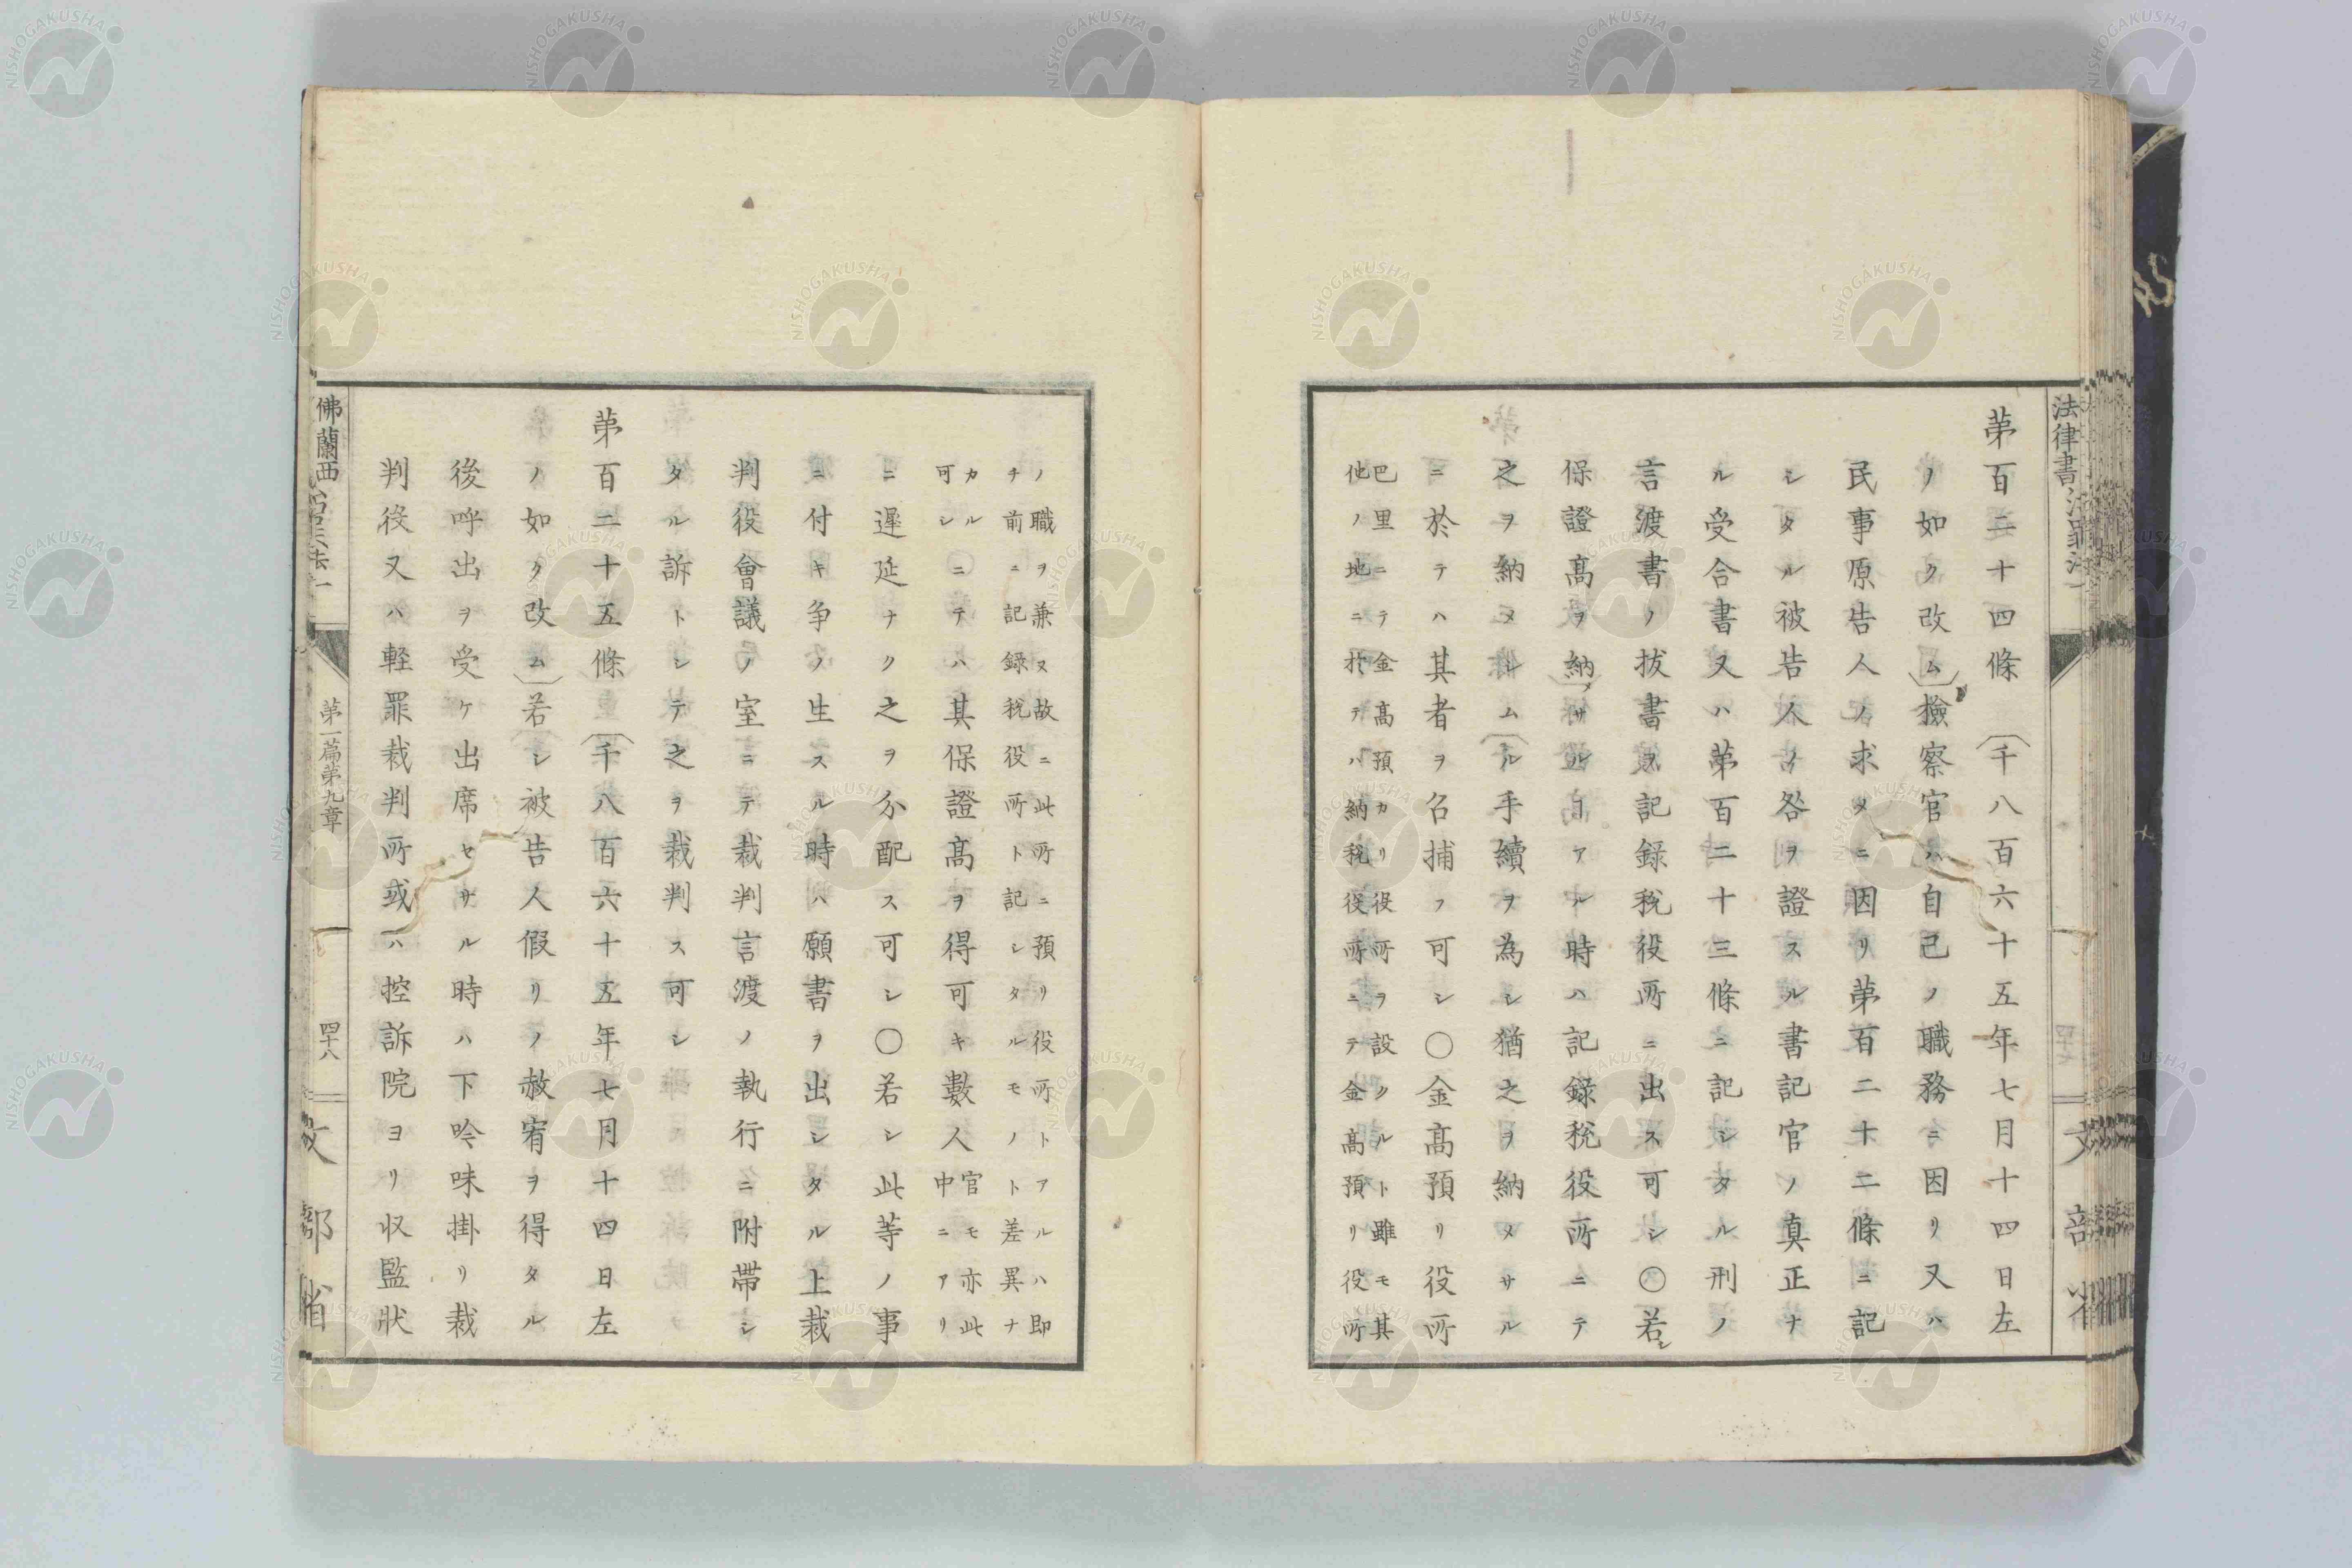 第百二十四條 (千八百六十五年七月十四日左
ノ如ク改ム)撿察官ハ自己ノ職務ニ因リ又ハ
民事原告人ノ求メニ因リ第百二十二條ニ記
シタル被告人ノ咎ヲ證スル書記官ノ真正ナ
ル受合書又ハ第百二十三條ニ記シタル刑ノ
言渡書ノ抜書ヲ記録税役所ニ出ス可シ〇若シ
保證髙ヲ納メサルヿアル時ハ記録税役所ニテ
之ヲ納メシムル手續ヲ為シ猶之ヲ納メサル
ニ於テハ其者ヲ召捕フ可シ〇金髙預リ役所
巴里ニテ金髙預カリ役所ヲ設クルト雖モ其
他ノ地ニ於テハ納税役所ニテ金髙預リ役所
ノ職ヲ兼ヌ故ニ此所ニ預リ役所トアルハ即
チ前ニ記録税役所ト記シタルモノト差異ナ
カル
可シ
ニテハ其保證髙ヲ得可キ數人
官モ亦此
中ニアリ
ニ遲延ナク之ヲ分配ス可シ〇若シ此等ノ事
ニ付キ争ノ生スル時ハ願書ヲ出シタル上裁
判役會議ノ室ニテ裁判言渡ノ執行ニ附帶シ
タル訴トシテ之ヲ裁判ス可シ
第百二十五條 (千八百六十五年七月十四日左
ノ如ク改ム)若シ被告人假リノ赦宥ヲ得タル
後呼出ヲ受ケ出席セサル時ハ下吟味掛リ裁
判役又ハ軽罪裁判所或ハ控訴院ヨリ収監狀
法律書
文部省
佛蘭西
第一篇第九章
四十八
文部省
NISHOGAKUSHA